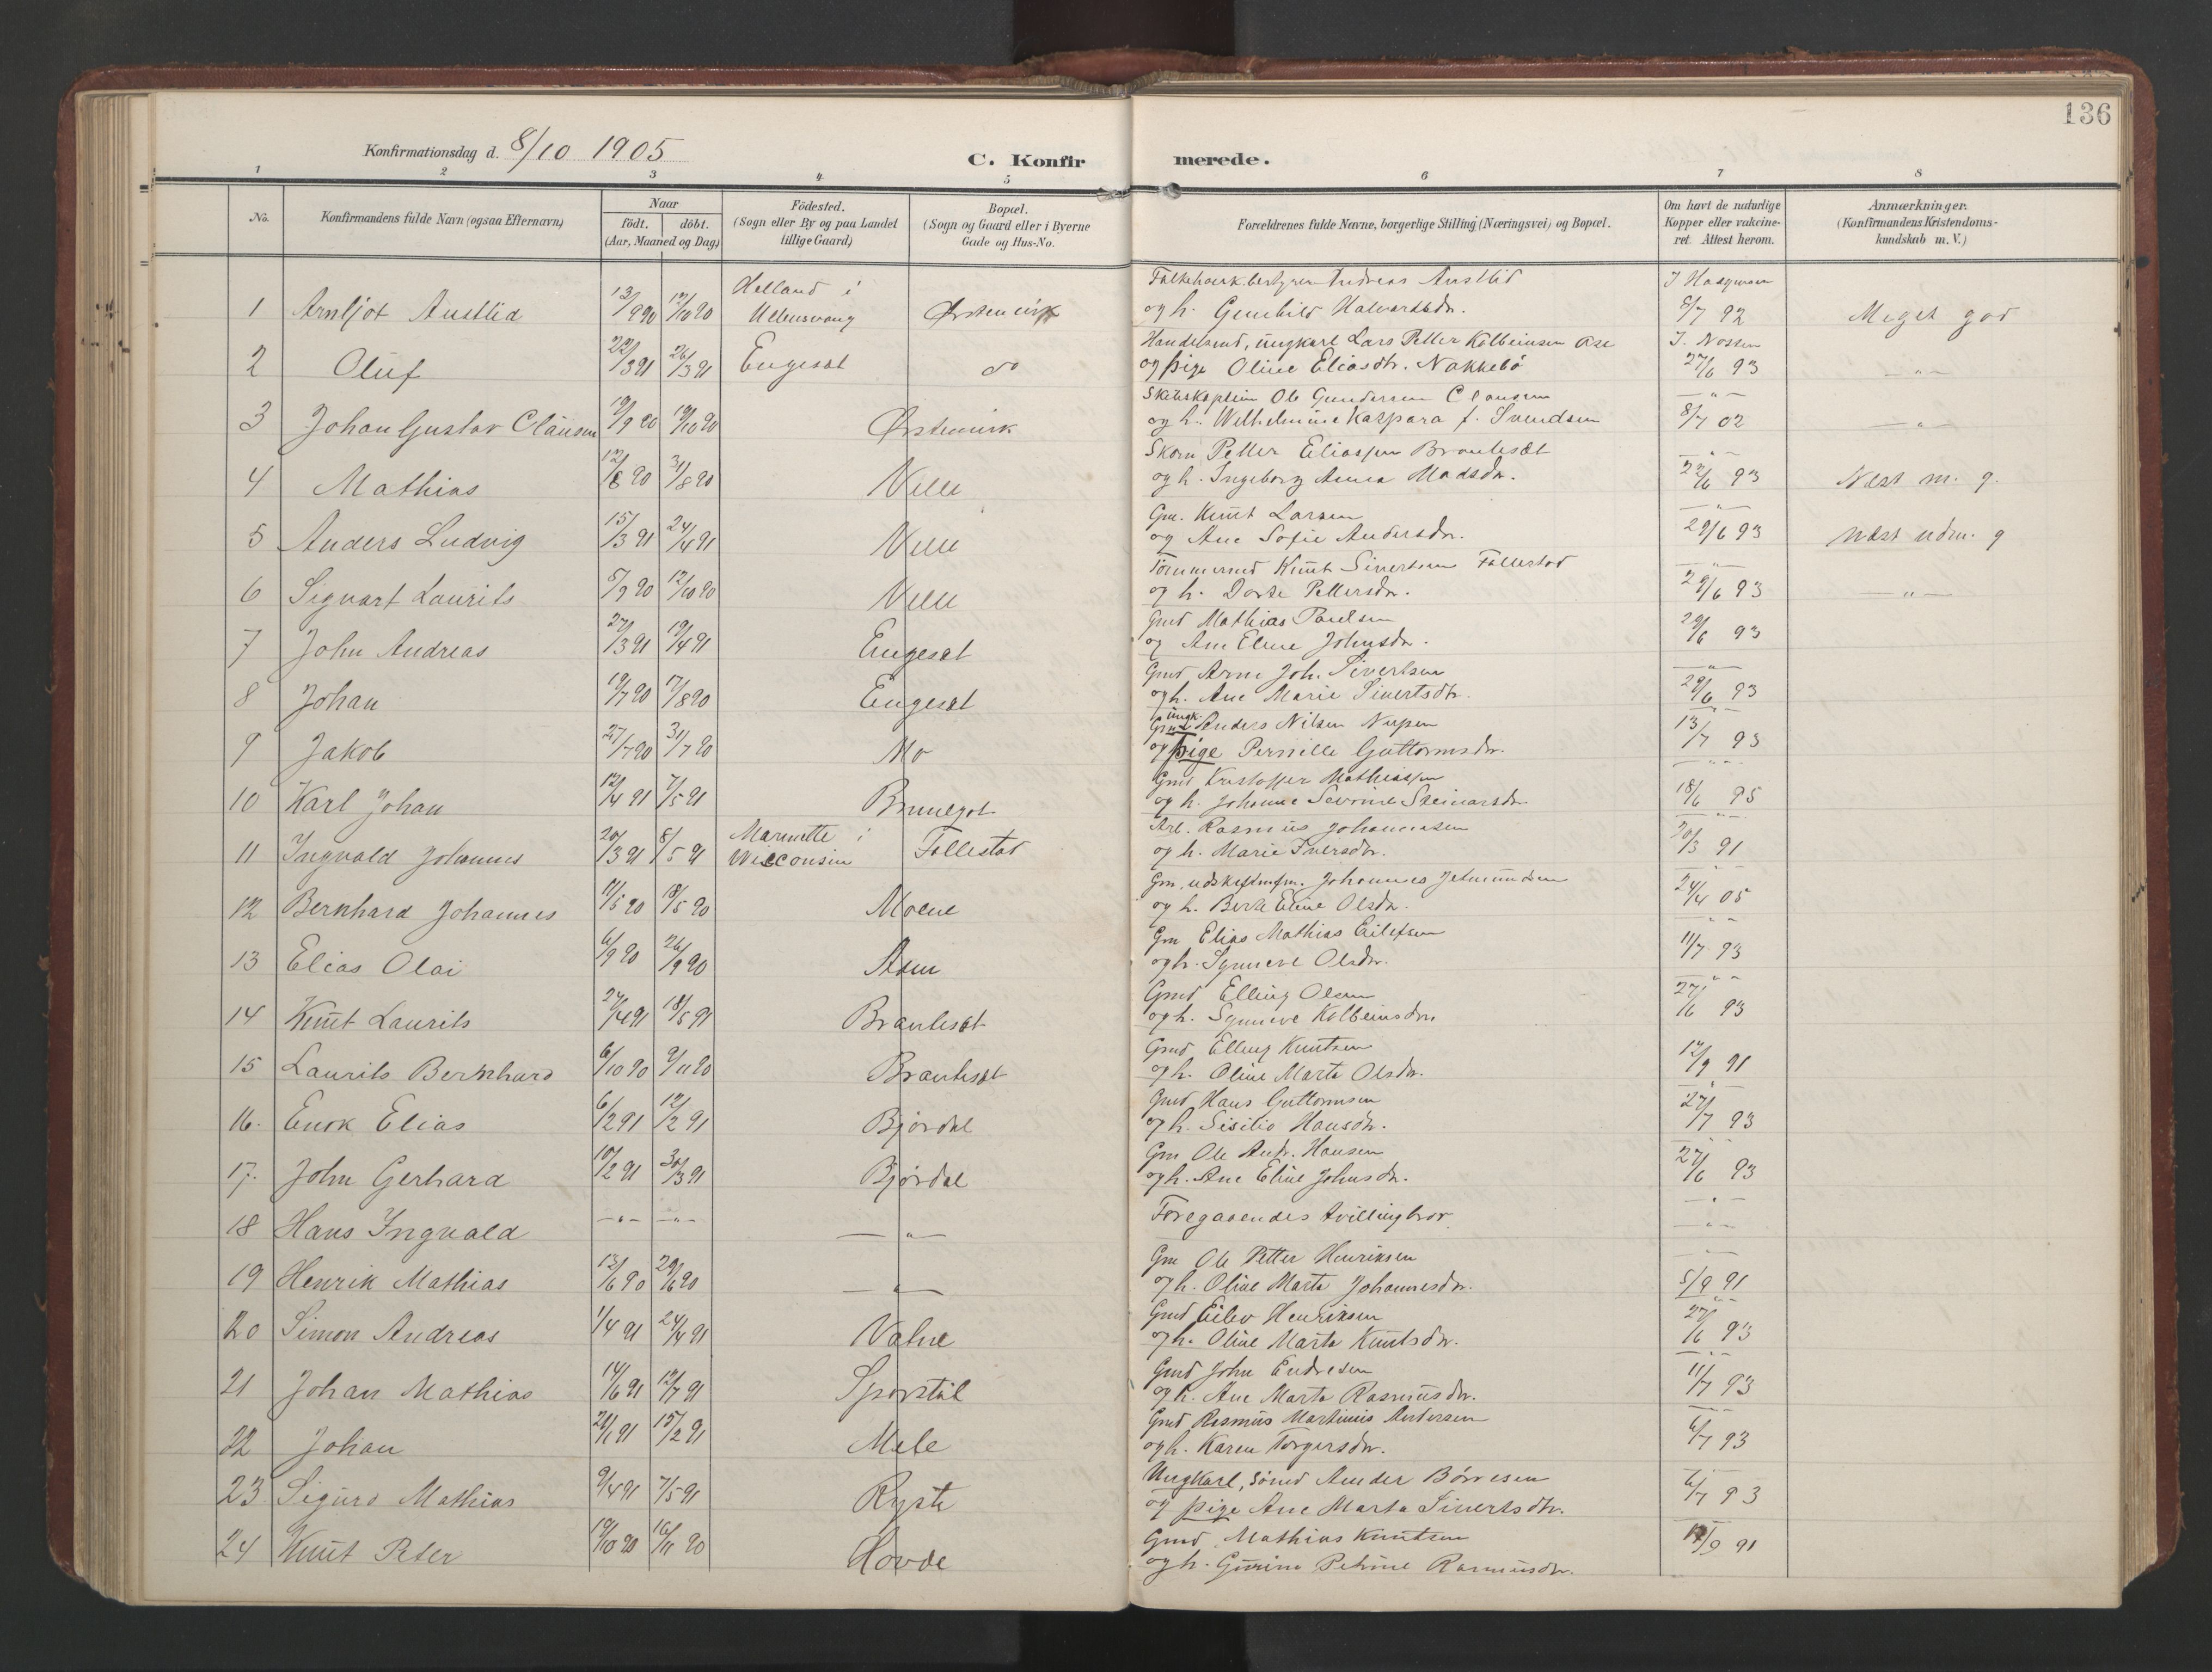 136
Konfirmationsdag d. 8/10 1905
C. Konfirmerede.
1 2 3 4 5 6 7 8
No.
Konfirmandens fulde Navn (ogsaa Efternavn)
Naar
födt. döbt.
(Aar, Maaned og Dag)
Födested.
(Sogn eller By og paa Landet
tillige Gaard)
Bopæl.
(Sogn og Gaard eller i Byerne
Gade og Hus-No.
Forældrenes fulde Navne, borgerlige Stilling (Næringsvei) og Bopæl.
Om havt de naturlige
Kopper eller vakcine-
ret. Attest herom.
Anmærkninger.
(Konfirmandens Kristendoms-
kundskab m. V.)
Helland i Andreas Austlid
1 Arnljot Austlid 13/9 90 12/10 90 Ullensvang og h. Gunhild Halvardsdr. 8/7 92 Meget god
Lars Petter Kolbeinsen Ose
2 Oluf 22/3 91 26/3 91 Engeset do og pige Oline Eliasdtr. Nakkebö 27/6 93 -"-
Ole Gundersen Clausen -"-
3 Johan Gustav Clausen 19/9 90 19/10 90 og h. Wilhelmine Kaspara f. Svendsen 8/7 02 -"-
Skom. Petter Eliassen Brauteset -"-
4 Mathias 31/8 90 Velle og h. Ingeborg Anna Madsdr. 93 Næst m. g.
Gm. Knut Larsen
5 Anders Ludvig 15/3 91 24/4 91 Velle og Ane Sofie Andersdr. 29/6 93 Næst udm. g
Tömmermd Knut Sivertsen Follestad
6 Sigvart Laurits 5/9 90 12/10 90 Velle og h. Dorte Pettersdr. 29/6 93 -"-
Gmd Mathias Paulsen
7 John Andreas 27/3 91 19/4 91 Engeset og Ane Eline Johnsdr. 29/6 93
Gmd Arne Joh. Sivertsen
8 Johan 19/7 90 17/8 90 Engeset og h. Ane Marie Sivertsdtr. 29/6 93
ungk. Anders Nilsen
9 Jakob 27/7 90 31/7 90 Mo og pige Pernille Guttormsdr. 13/7 93
Gmd Kristoffer Mathiassen
10 Karl Johan 12/4 91 7/5 91 og h. Johanne Severine Steinarsdr. 18/6 95
Marinette i Arb. Rasmus Johannesen
11 Ingvald Johannes 20/3 91 8/5 91 Wisconsin Follestad og h. Marie Iversdr. 91
Johannes Jetmundsen
12 Bernhard Johannes 18/5 90 Moene og h. Berte Eline Olsdr. 24/4 05
Gm Elias Mathias Eilefsen
13 Elias Olai 6/9 90 26/9 90 Aam og h. Synneve Olsdr. 11/7 93
Gmd Elling Olsen
14 Knut Laurits 27/4 91 18/5 91 Brauteset og h. Synneve Kolbeinsdr. 27/6 93
Gmd Elling Knutsen
15 Laurits Bernhard 6/10 90 9/11 90 Brauteset og h. Oline Marte Olsdr. 12/9 91
Gmd Hans Guttormsen
16. Enok Elias 6/2 91 12/2 91 Bjørdal og h. Sisilie Hansdr. 27/7 93
Gm Ole Andr. Hansen
17. John Gerhard 10/2 91 30/3 91 Bjørdal og h. Ane Eline Johnsdr. 27/6 93
18 Hans Ingvald -"- -"- -"- Foregaaendes tvillingbror -"-
Gm Ole Petter Henriksen
19 Henrik Mathias 13/6 90 29/6 90 -"- og h. Oline Marte Johannesdr. 5/9 91
Gmd Eilev Henriksen
20 Simon Andreas 1/4 91 24/4 91 Vatne og h. Oline Marta Knutsdr. 27/6 93
Gmd John Endresen
21 Johan Mathias 14/6 91 12/7 91 og h. Ane Marta Rasmusdr. 11/7 93
Gmd Rasmus Martinius Andersen
22 Johan 15/2 91 Mele og h. Karen Torgersdr. 6/7 93
Ungkarl, Anders Börresen
23 Sigurd Mathias 9/4 91 7/5 91 Ryste og pige Ane Marta Sivertsdtr. 6/7 93
Gmd Mathias Knutsen
24 Knut Peter 19/10 90 16/11 90 Hovde og h. Petrine Rasmusdr. 12/9 91